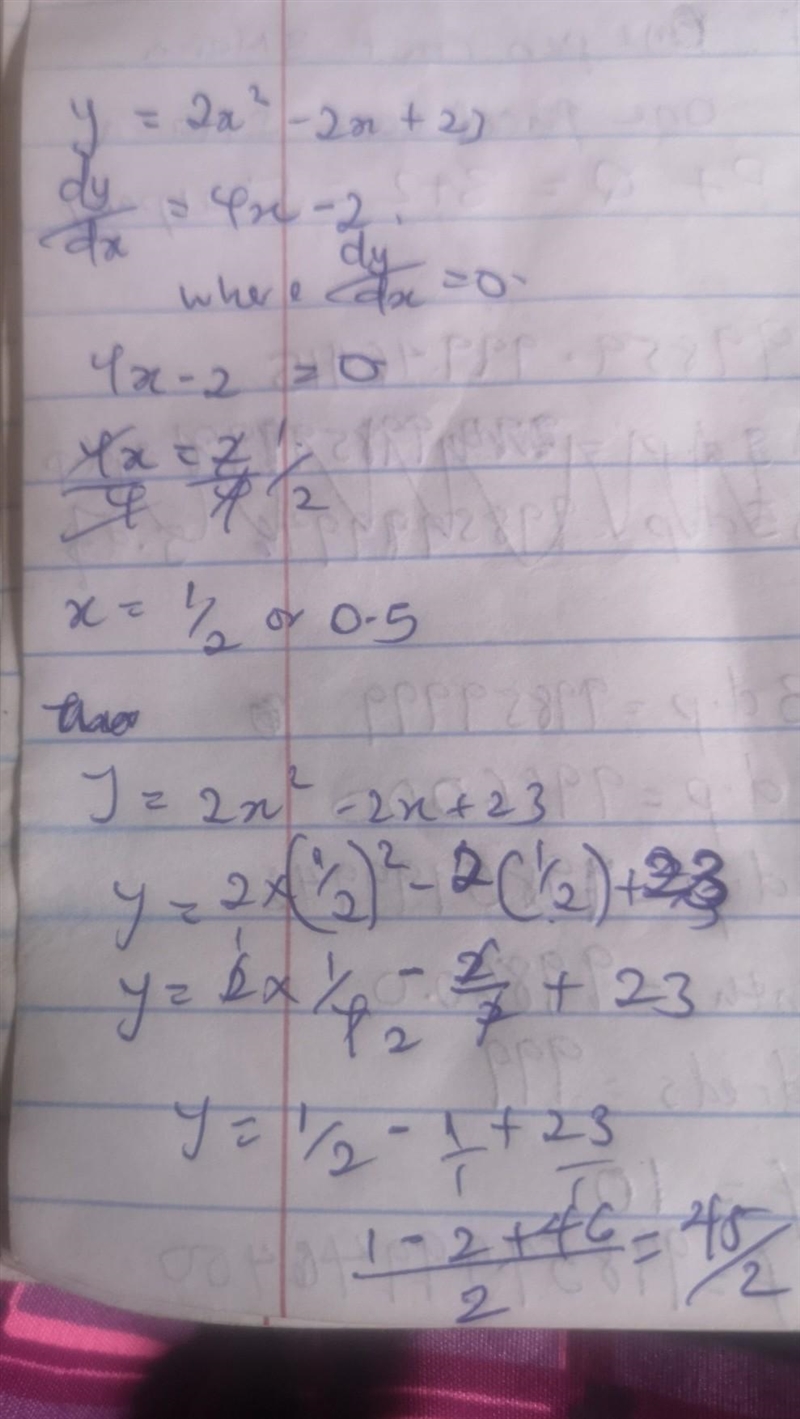 y = 2x² - 2x + 23
dy/dx = 4x - 2.
where dy/dx = 0.
4x - 2 = 0
4x/4 = 2/4 1/2
x = 1/2 or 0.5
y = 2x² - 2x + 23
y = 2x(1/2)² - 2(1/2) + 23
y = 2 1 x 1/4 2 - 2/2 + 23
y = 1/2 - 1/1 + 23/1
1 - 2 + 46/2 = 45/2